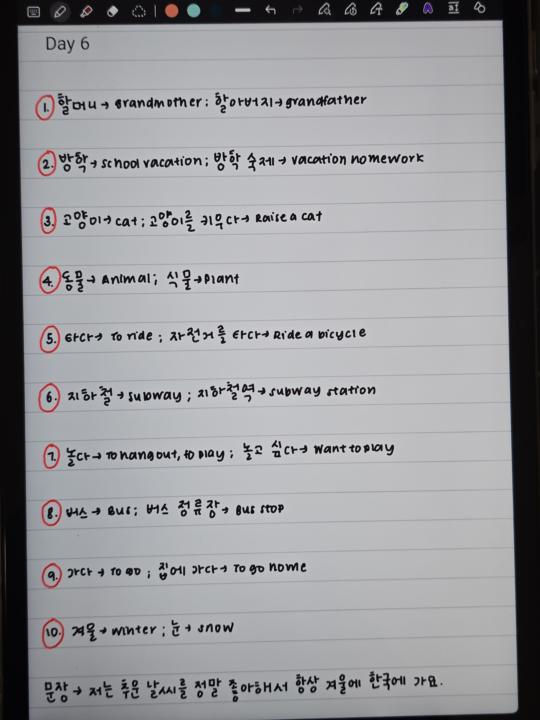 Day 6
1. 할머니 → Grandmother; 할아버지 → grandfather
2. 방학 → school vacation; 방학 숙제 → vacation homework
3. 고양이 → cat; 고양이를 키우다 → Raise a cat
4. 동물 → Animal; 식물 → Plant
5. 타다 → To ride; 자전거를 타다 → Ride a bicycle
6. 지하철 → subway; 지하철역 → subway station
7. 놀다 → To hang out, to play; 놀고 싶다 → Want to play
8. 버스 → Bus; 버스 정류장 → Bus stop
9. 가다 → To go; 집에 가다 → To go home
10. 겨울 → winter; 눈 → snow
문장 → 저는 추운 날씨를 정말 좋아해서 항상 겨울에 한국에 가요.